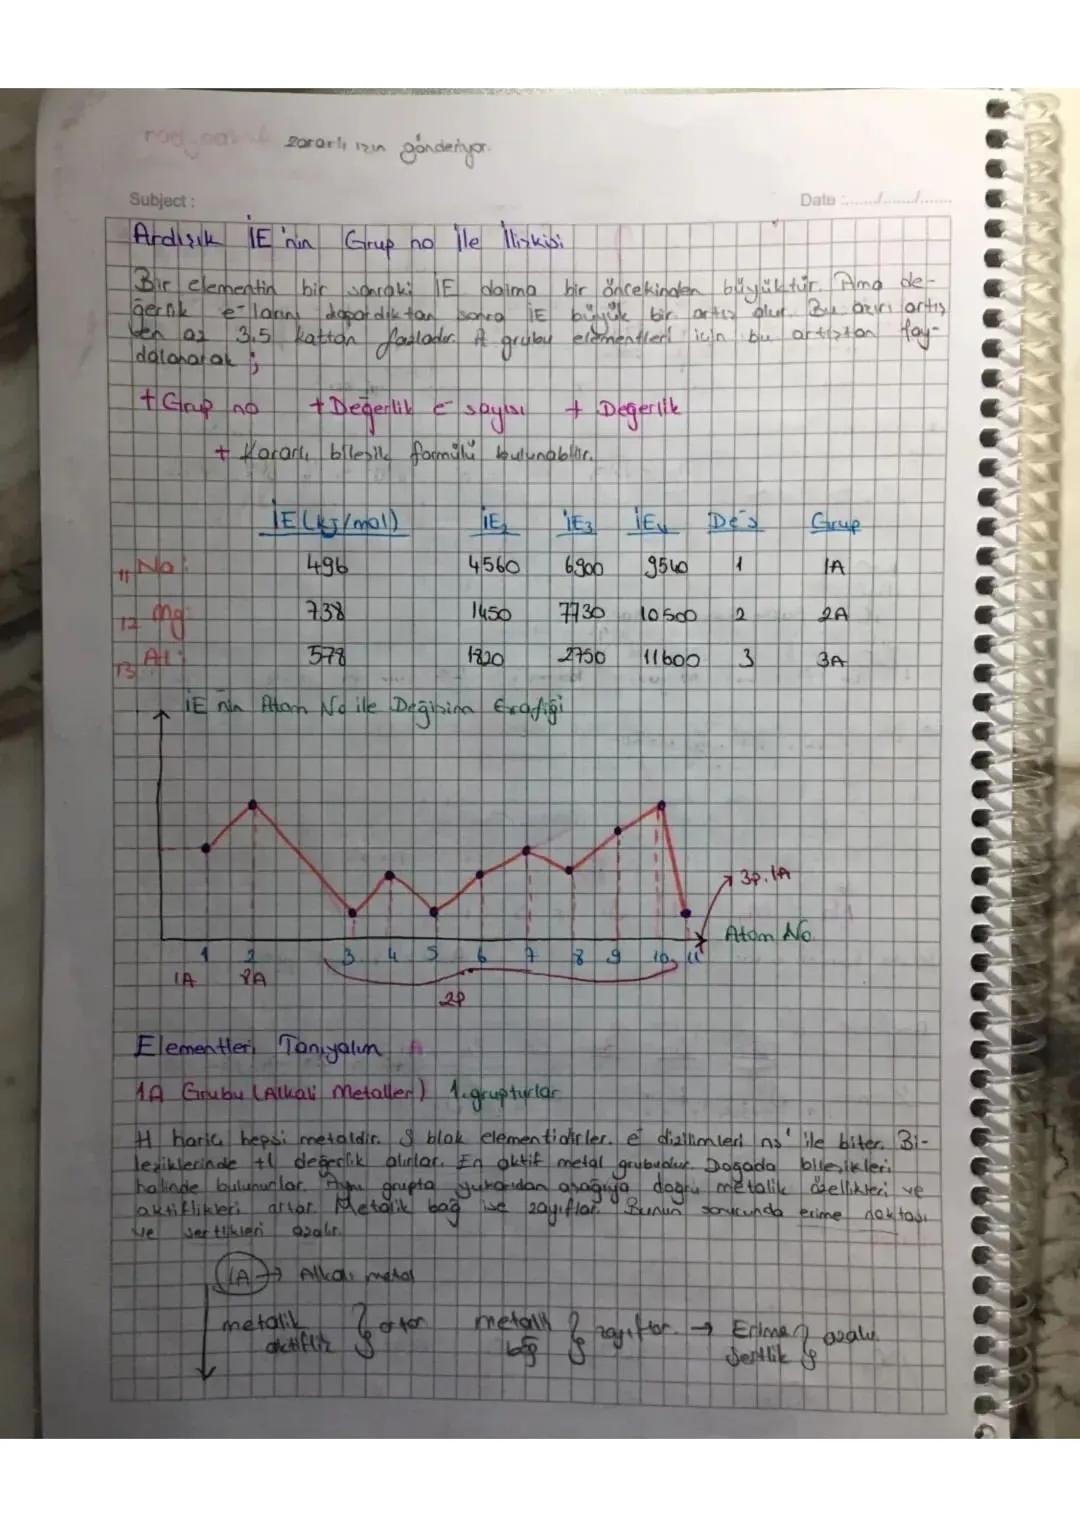 zararlı ızın gönderiyor.
Subject :
Date :......./......./.......
Ardışık İE'nin Grup no İle İlişkisi
Bir elementin bir sonraki İE daima bir öncekinden büyüktür. Ama de-
ğerlik e⁻ larını kopardıktan sonra İE büyük bir artış olur. Bu aşırı artış
en az 3,5 kattan fazladır. A grubu elementleri için bu artıştan fay-
dalanarak ;
+ Grup no + Değerlik e⁻ sayısı + Değerlik
+ Kararlı bileşik formülü bulunabilir.
İE (kJ/mol) İE₂ İE₃ İE₄ De⁻s Grup
₁₁Na: 496 4560 6900 9540 1 1A
₁₂Mg: 738 1450 7730 10500 2 2A
₁₃Al: 578 1820 2750 11600 3 3A
İE nin Atom No ile Değişim Grafiği
3p.1A
Atom No
1 2 3 4 5 6 7 8 9 10 11
1A 8A
2P
Elementleri Tanıyalım
1A Grubu (Alkali Metaller) 1. grupturlar
H hariç hepsi metaldir. S blok elementidirler. e⁻ dizilimleri ns¹ ile biter. Bi-
leşiklerinde +1 değerlik alırlar. En aktif metal grubudur. Doğada bileşikleri
halinde bulunurlar. Aynı grupta yukarıdan aşağıya doğru metalik özellikleri ve
aktiflikleri artar. Metalik bağ ise zayıflar. Bunun sonucunda erime noktası
ve sertlikleri azalır.
1A → Alkali metal
metalik } artar metalik } zayıflar. → Erime } azalır.
aktiflik bağ Sertlik